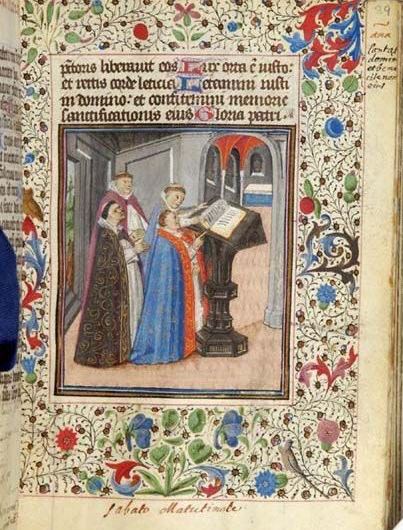 pctoris liberauit eos Lux orta e iusto:
et rectis corde leticia Letamini iusti
in domino: et confitemini memorie
sanctificationis eius Gloria patri
39
ana
domino
eius
Sabato Matutinale